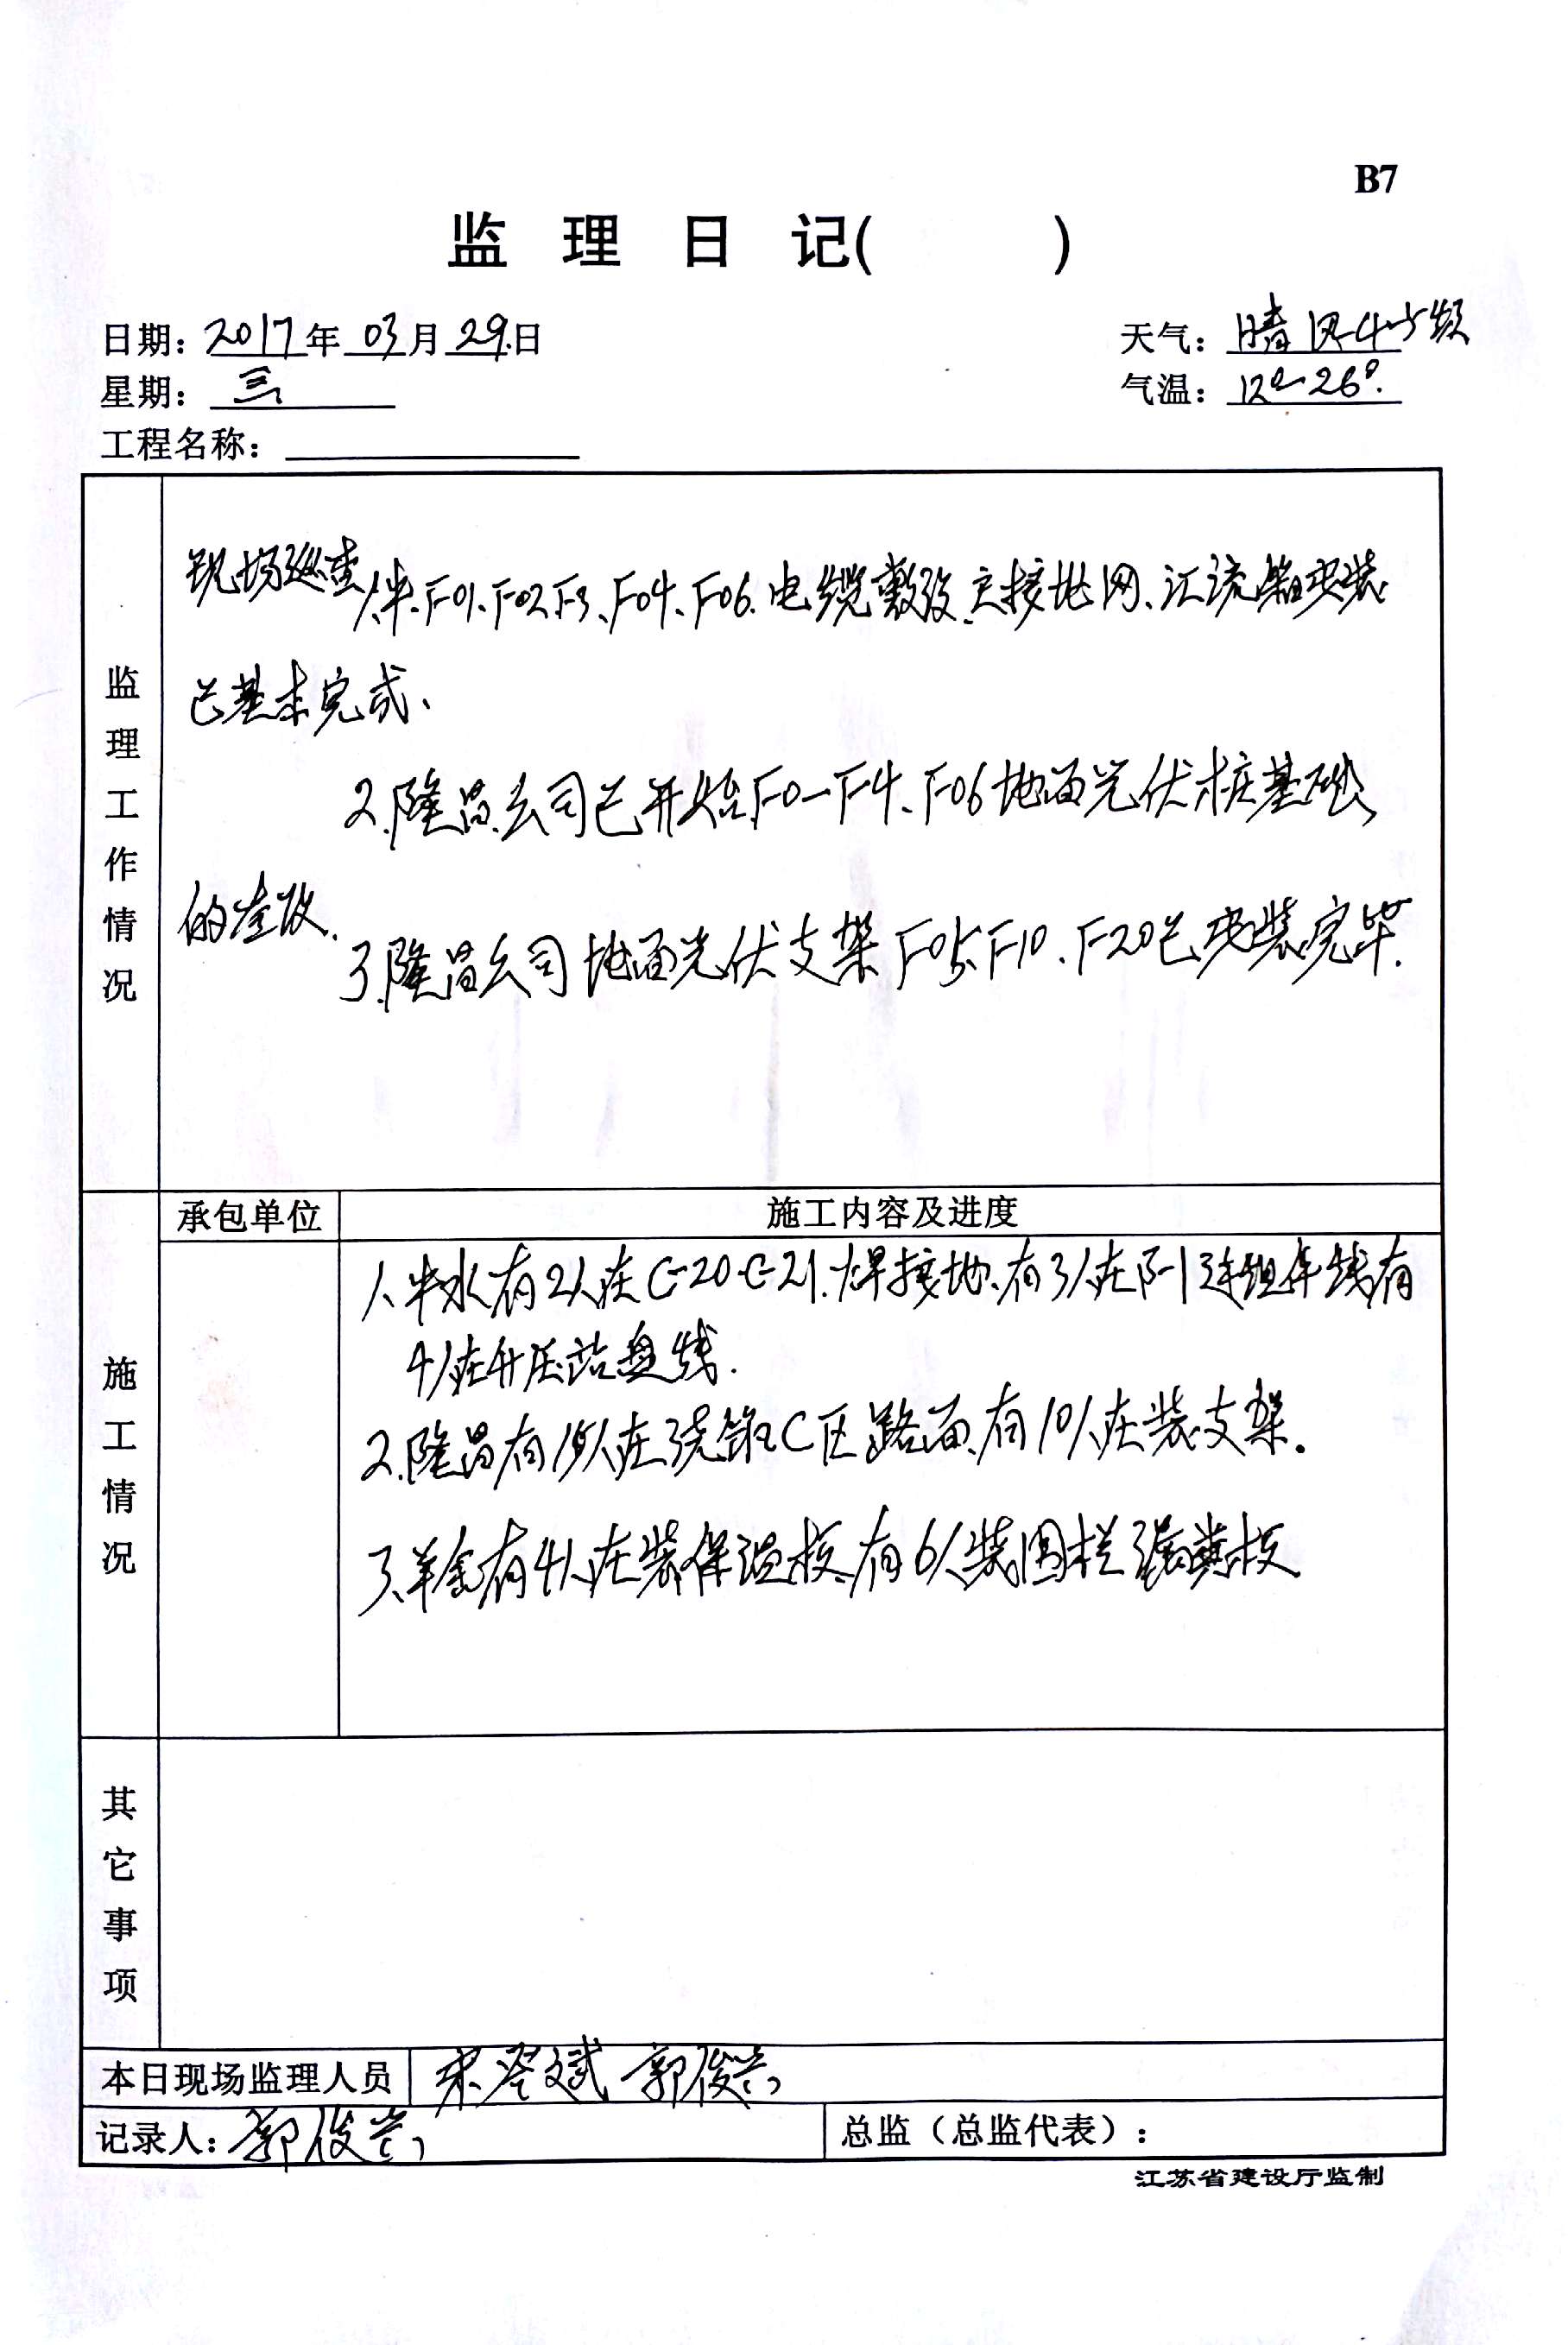 B7
监 理 日 记(          )
日期: 2017 年 03 月 29 日
天气: 晴 风4-5级
星期: 三
气温: 12°-26°.
工程名称:
监理工作情况
现场巡查 1、F01、F02、F3、F04、F06、电缆敷设、主接地网、汇流箱安装
已基本完成、
2、隆昌公司已开始F0-F4、F06地面光伏桩基础
的整改、
3、隆昌公司地面光伏支架F05、F10、F20已安装完毕.
承包单位
施工内容及进度
施工情况
1、水有2人在C-20 C-21.焊接地、有3人在F-1连组件线有
4人在升压站盘线.
2、隆昌有15人在浇筑C区路面、有10人在装支架.
3、有4人在装保温板、有6人装围栏
其它事项
本日现场监理人员
郭俊
记录人: 郭俊
总监（总监代表）:
江苏省建设厅监制